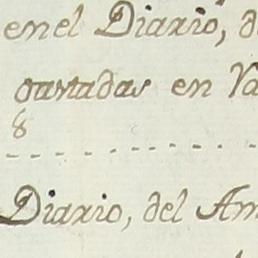 en el Diario, d
cartadas en Va
8
Diario, del Am